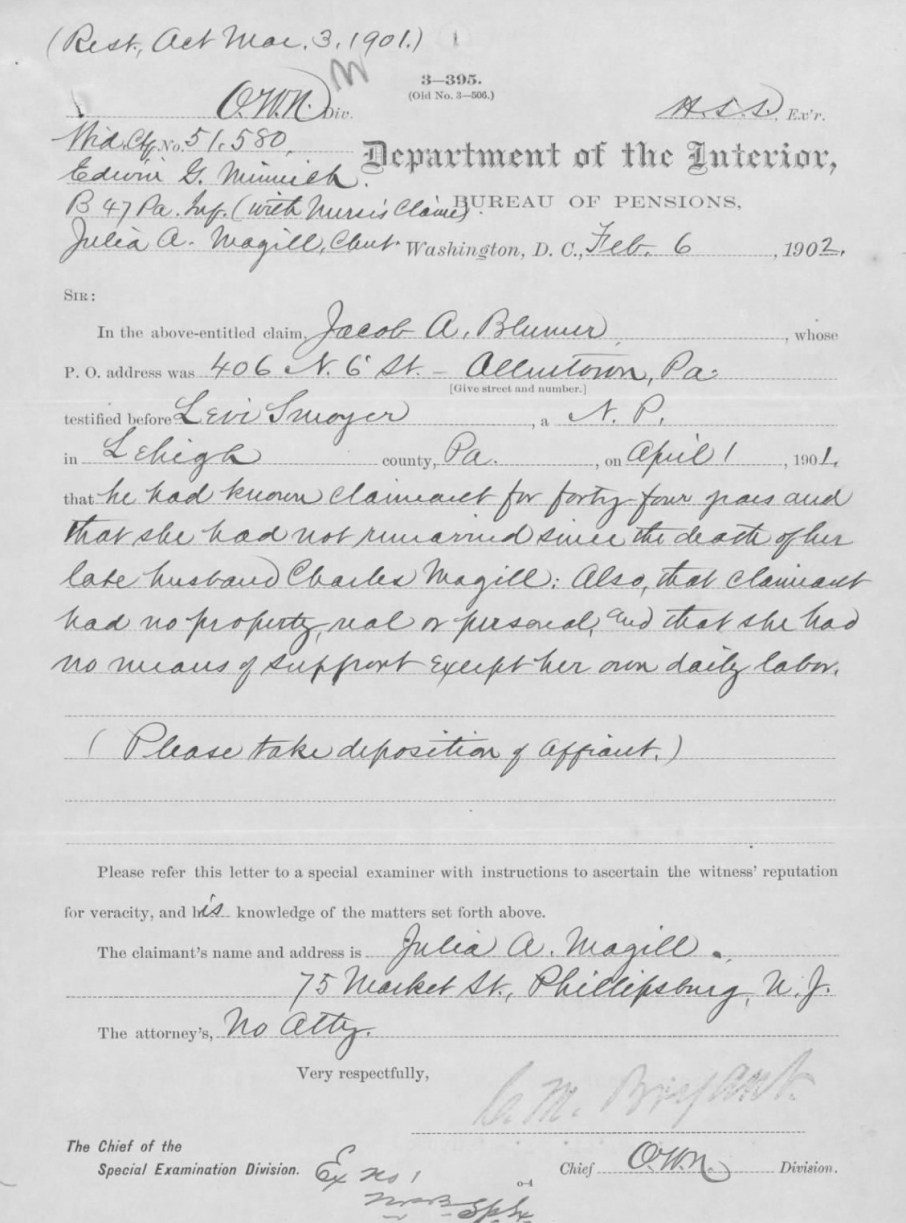 (Rest, Act Mar. 3, 1901.)
3—395.
(Old No. 3—506.)
O.W.N. Div.
H.S.S. Ex'r.
Wid. Ctf. No. 51,580,
Department of the Interior,
Edwin G. Minnich.
BUREAU OF PENSIONS,
B 47 Pa. Inf. (with Nurse's Claim).
Julia A. Magill, Clmt.
Washington, D. C., Feb. 6, 1902.
SIR:
In the above-entitled claim, Jacob A. Blumer, whose
P. O. address was 406 N. 6 St. – Allentown, Pa.
[Give street and number.]
testified before Levi Smoyer, a N. P.
in Lehigh county, Pa., on April 1, 1901,
that he had known claimant for forty-four years and
that she had not remarried since the death of her
late husband Charles Magill: Also, that claimant
had no property, real or personal, and that she had
no means of support except her own daily labor.
(Please take deposition of affiant.)
Please refer this letter to a special examiner with instructions to ascertain the witness' reputation
for veracity, and his knowledge of the matters set forth above.
The claimant's name and address is Julia A. Magill.
75 Market St., Phillipsburg, N. J.
The attorney's, No Atty.
Very respectfully,
C. M. Bryant.
The Chief of the
Special Examination Division.
Chief O.W.N. Division.
Ex No 1
o-4